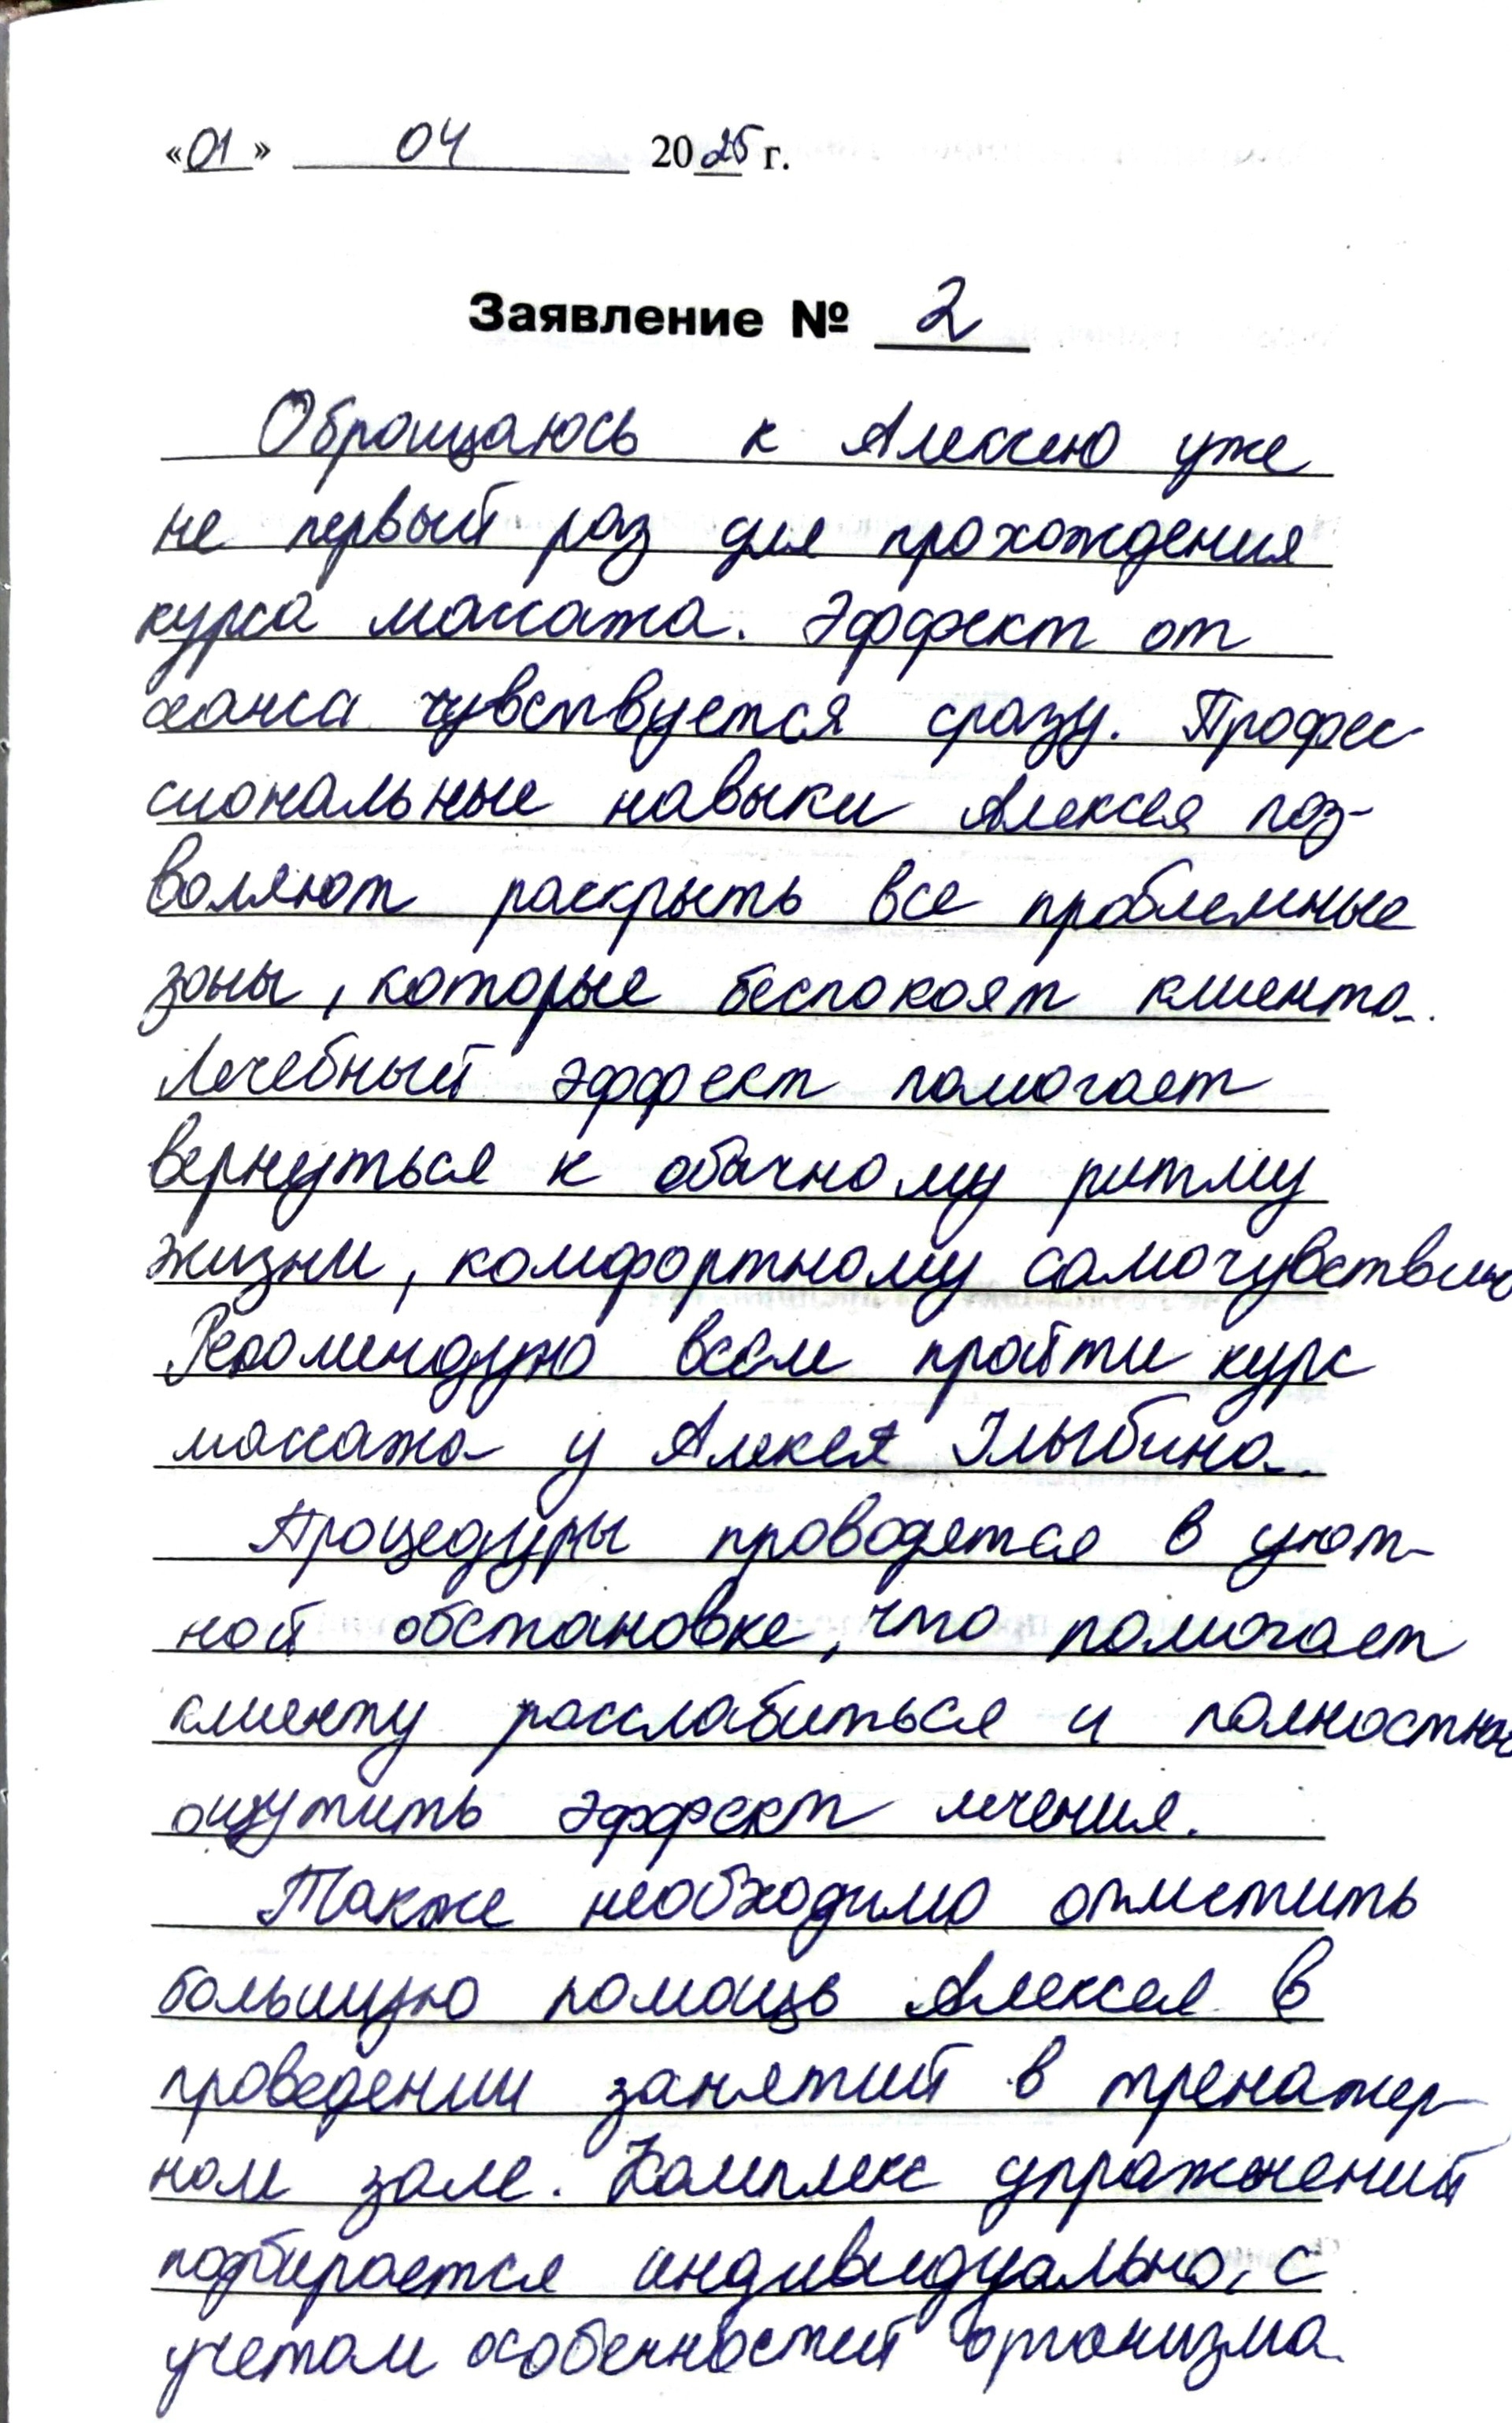 «01» 04 2025 г.
Заявление № 2
Обращаюсь к Алексею уже
не первый раз для прохождения
курса массажа. Эффект от
сеанса чувствуется сразу. Профес-
сиональные навыки Алексея поз-
воляют раскрыть все проблемные
зоны, которые беспокоят клиента.
Лечебный эффект помогает
вернуться к обычному ритму
жизни, комфортному самочувствию
Рекомендую всем пройти курс
массажа у Алексея Улыбина.
Процедуры проводятся в уют-
ной обстановке, что помогает
клиенту расслабиться и полностью
ощутить эффект лечения.
Также необходимо отметить
большую помощь Алексея в
проведении занятий в тренажер-
ном зале. Комплекс упражнений
подбирается индивидуально, с
учетом особенностей организма.